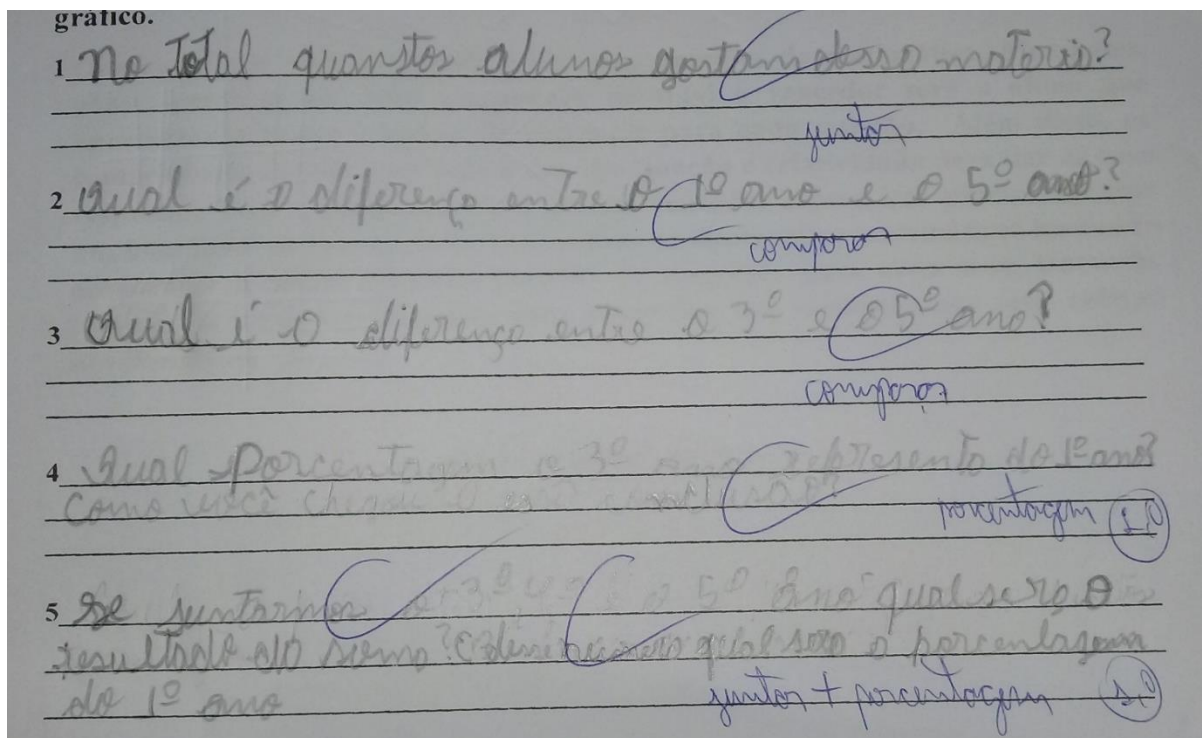 gráfico.
1 no Total quanstos alunos gostam dessa materia?
juntar
2 Qual é a diferença entre o 1º ano e o 5º ano?
comparar
3 Qual é a diferença entre o 3º e o 5º ano?
comparar
4 Qual porcentagem o 3º ano representa do 1º ano?
Como você chegou
porcentagem
5 Se juntarmos 3º 5º ano qual sera o
resultado da soma? qual sera a porcentagem
do 1º ano
juntar + porcentagem